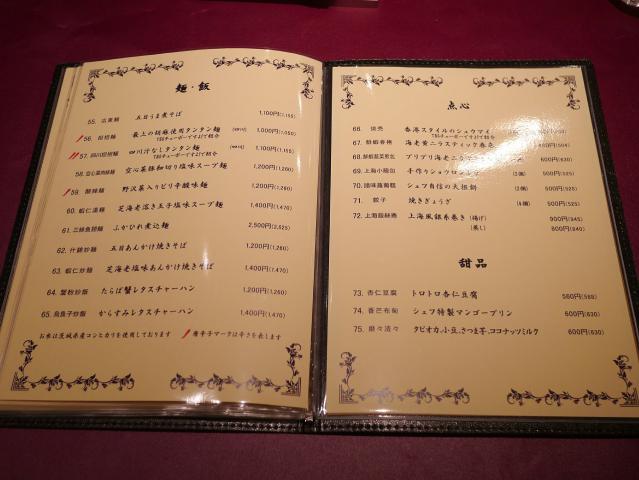 麺・飯
55. 広東麺 五目うま煮そば 1,100円(1,155)
56. 担担麺 最上の胡麻使用タンタン麺 1,000円(1,050)
TBSチューボーですよ!で紹介
57. 四川担担麺 四川汁なしタンタン麺 1,100円(1,155)
TBSチューボーですよ!で紹介
58. 空心菜豚細切り塩味スープ麺 1,200円(1,260)
59. 酸辣麺 野沢菜入りピリ辛酸味麺 1,200円(1,260)
60. 蝦仁湯麺 芝海老溶き玉子塩味スープ麺 1,400円(1,470)
61. 三絲魚翅麺 ふかひれ煮込麺 2,500円(2,625)
62. 什錦炒麺 五目あんかけ焼きそば 1,200円(1,260)
63. 蝦仁炒麺 芝海老塩味あんかけ焼きそば 1,400円(1,470)
64. 蟹粉炒飯 たらば蟹レタスチャーハン 1,200円(1,260)
65. 烏魚子炒飯 からすみレタスチャーハン 1,400円(1,470)
お米は茨城県産コシヒカリを使用しております 唐辛子マークは辛さを表します
点心
66. 焼売 香港スタイルのシュウマイ
TBSチューボーですよ!で紹介
67. 鮮蝦春捲 海老黄ニラスティック春巻 (504)
68. プリプリ海老ニラ 600円(630)
69. 上海小籠包 手作りショウロンポウ (2個) 500円(525)
70. 臘味蘿蔔糕 シェフ自信の大根餅 (2個) 600円(630)
71. 餃子 焼きぎょうざ (4個) 500円(525)
72. 上海銀絲捲 上海風銀糸巻き (揚げ) 900円(945)
(蒸し) 800円(840)
甜品
73. 杏仁豆腐 トロトロ杏仁豆腐 560円(588)
74. 香芒布甸 シェフ特製マンゴープリン 600円(630)
75. 磨々渣々 タピオカ、小豆、さつま芋、ココナッツミルク 600円(630)